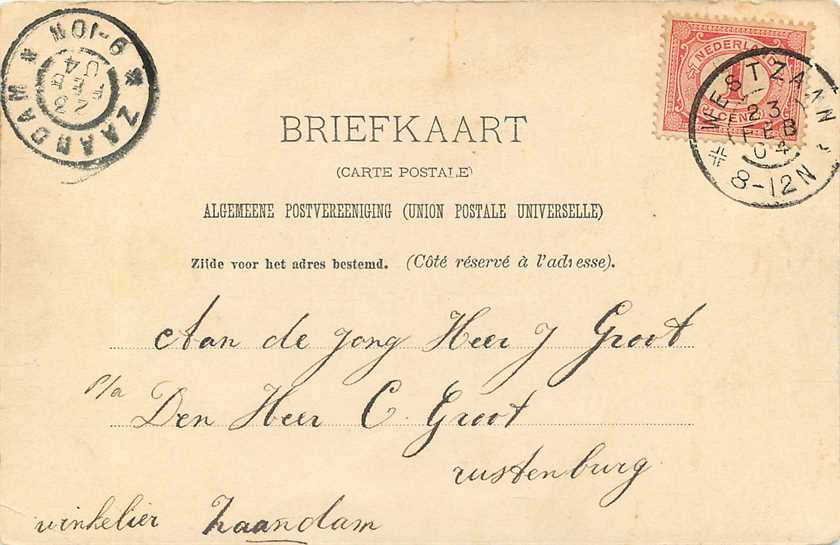 ZAANDAM
23
FEB
04
9-10N
NEDERLAND
1
CENT
WESTZAAN
23
FEB
04
8-12N
BRIEFKAART
(CARTE POSTALE)
ALGEMEENE POSTVEREENIGING (UNION POSTALE UNIVERSELLE)
Zijde voor het adres bestemd. (Côté réservé à l'adresse).
Aan de jong Heer J Groot
p/a
Den Heer C. Groot
rustenburg
winkelier Zaandam